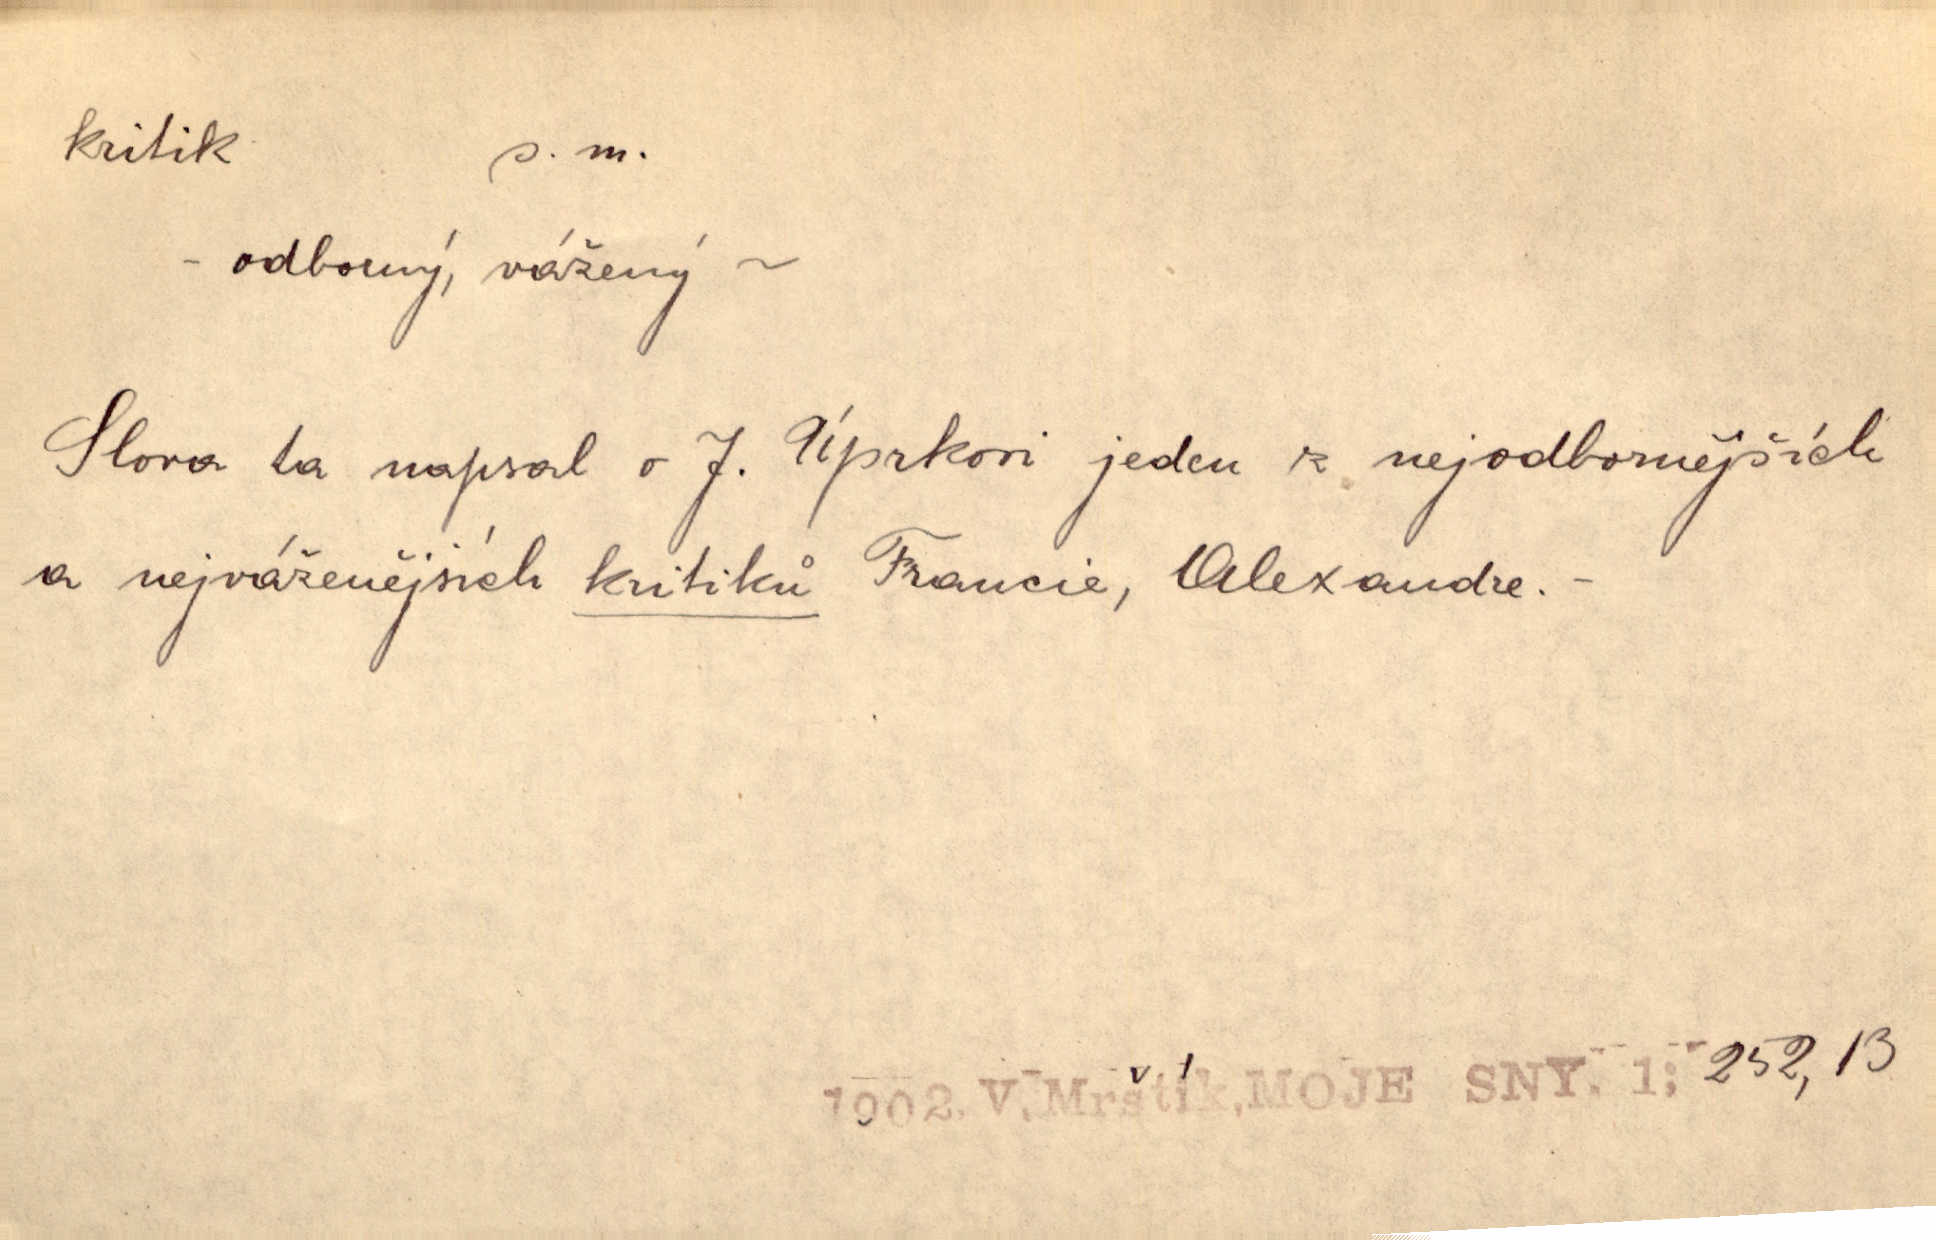 kritik s. m.
- odborný, vážený ~
Slova ta napsal o J. Úprkovi jeden z nejodbornějších
a nejváženějších kritiků Francie, Alexandre. -
1902. V. Mrštík, MOJE SNY. 1; 252, 13